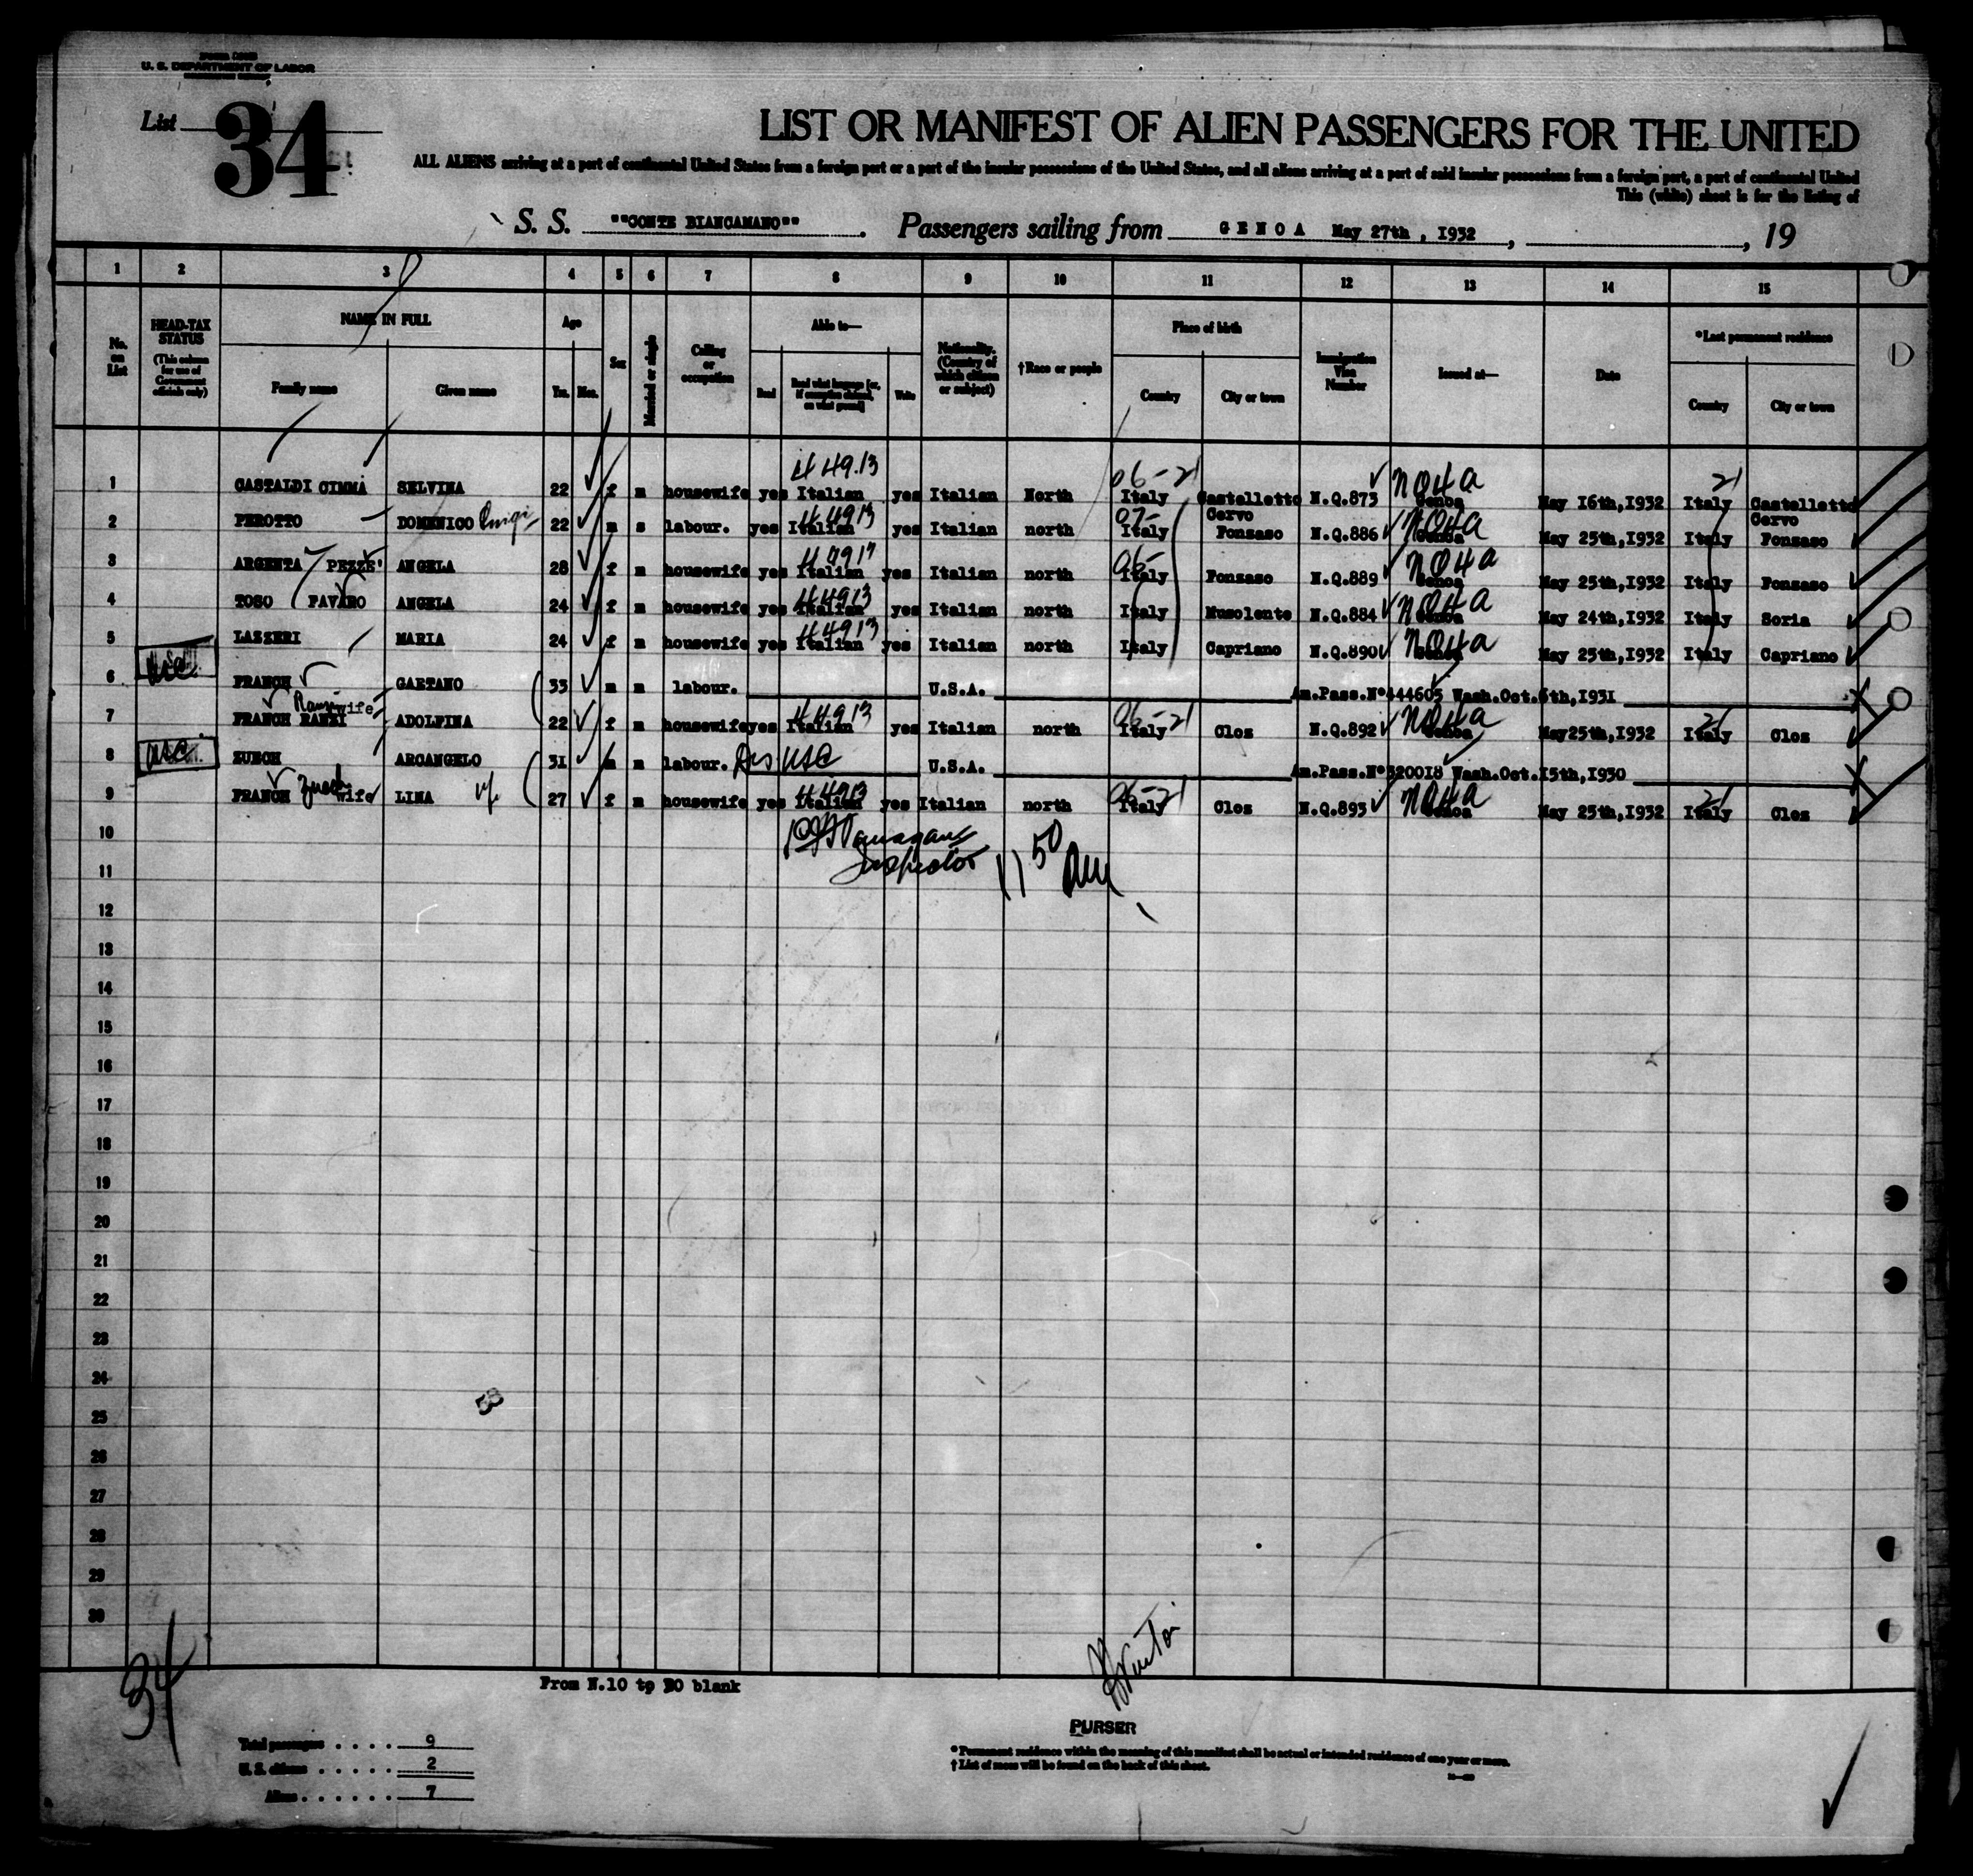 U. S. DEPARTMENT OF LABOR
List 34
LIST OR MANIFEST OF ALIEN PASSENGERS FOR THE UNITED
ALL ALIENS arriving at a port of continental United States from a foreign port or a port of the insular possessions of the United States, and all aliens arriving at a port of said insular possessions from a foreign port, a port of continental United
This (white) sheet is for the listing of
S. S. ""CONTE BIANCAMANO"" . Passengers sailing from GENOA May 27th , 1932 , , 19
1 2 3 4 5 6 7 8 9 10 11 12 13 14 15
No. on List
HEAD-TAX STATUS (This column for use of Government officials only)
NAME IN FULL
Family name Given name
Age
Yrs. Mos.
Sex
Married or single
Calling or occupation
Able to—
Read Read what language [or, if exemption claimed, on what ground] Write
Nationality. (Country of which citizen or subject)
†Race or people
Place of birth
Country City or town
Immigration Visa Number
Issued at—
Date
*Last permanent residence
Country City or town
44913 06-21 NOHa 21
1 CASTALDI CIMMA SELVINA 22 f m housewife yes Italian yes Italian North Italy Castelletto Cervo N.Q.873 Genoa May 16th,1932 Italy Castelletto Cervo
2 PEROTTO DOMENICO Luigi 22 m s labour. yes Italian yes Italian north Italy Fonzaso N.Q.886 Genoa May 25th,1932 Italy Fonzaso
3 ARGENTA PEZZE' ANGELA 28 f m housewife yes Italian yes Italian north Italy Fonzaso N.Q.889 Genoa May 25th,1932 Italy Fonzaso
4 TOSO FAVARO ANGELA 24 f m housewife yes Italian yes Italian north Italy Musolente N.Q.884 Genoa May 24th,1932 Italy Soria
5 LAZZERI MARIA 24 f m housewife yes Italian yes Italian north Italy Capriano N.Q.890 Genoa May 25th,1932 Italy Capriano
6 USC FRANCH GAETANO 33 m m labour. U.S.A. Am.Pass.N°444605 Wash.Oct.6th,1931
7 FRANCH RANZI Ranzi wife ADOLFINA 22 f m housewife yes Italian yes Italian north Italy Cloz N.Q.892 Genoa May25th,1932 Italy Cloz
8 USC ZUECH ARCANGELO 31 m m labour. USC U.S.A. Am.Pass.N°320018 Wash.Oct.15th,1930
9 FRANCH Zuech wife LINA 27 f m housewife yes Italian yes Italian north Italy Cloz N.Q.893 Genoa May 25th,1932 Italy Cloz
10
Inspector 11 50 am
11
12
13
14
15
16
17
18
19
20
21
22
23
24
25
26
27
28
29
30
58
34
From N.10 to 30 blank
PURSER
Total passengers . . . . 9
U. S. citizens . . . . . 2
Aliens . . . . . . 7
* Permanent residence within the meaning of this manifest shall be actual or intended residence of one year or more.
† List of races will be found on the back of this sheet.